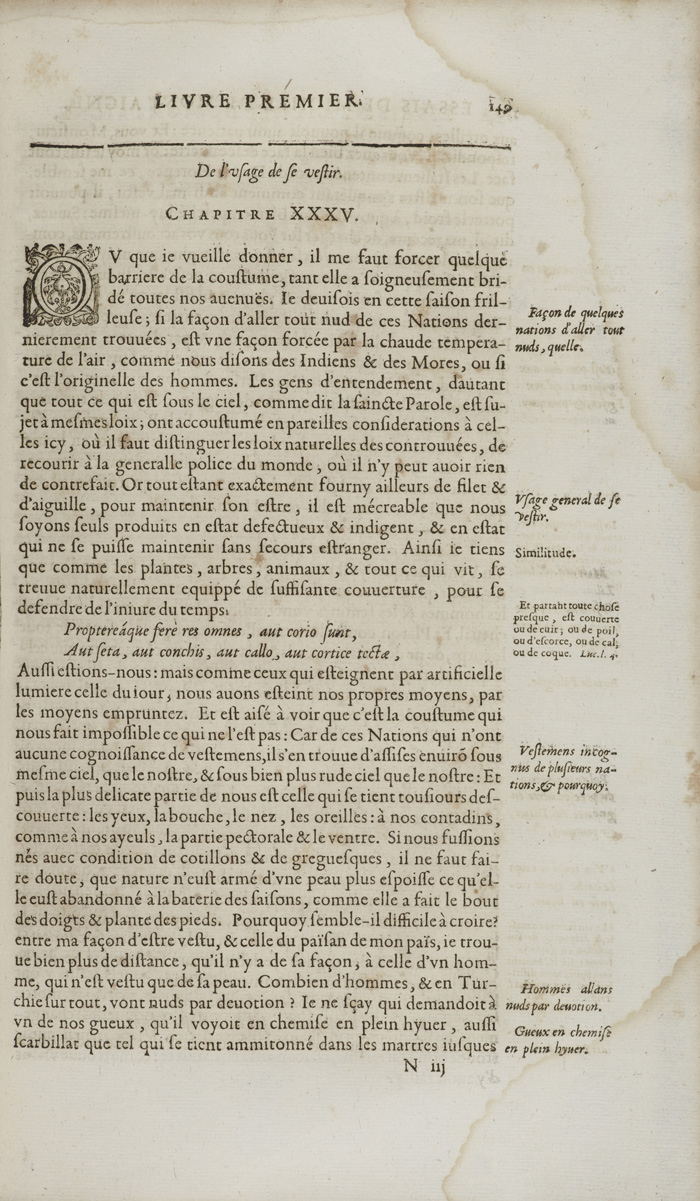 LIVRE PREMIER.
149
De l'vſage de ſe veſtir.
CHAPITRE XXXV.
OV que ie vueille donner, il me faut forcer quelque
barriere de la couſtume, tant elle a ſoigneuſement bri-
dé toutes nos auenuës. Ie deuiſois en cette ſaiſon fril-
leuſe; ſi la façon d'aller tout nud de ces Nations der-
nierement trouuées, eſt vne façon forcée par la chaude tempera-
ture de l'air, comme nous diſons des Indiens & des Mores, ou ſi
c'eſt l'originelle des hommes. Les gens d'entendement, dautant
que tout ce qui eſt ſous le ciel, comme dit la ſaincte Parole, eſt ſu-
jet à meſmes loix; ont accouſtumé en pareilles conſiderations à cel-
les icy, où il faut diſtinguer les loix naturelles des controuuées, de
recourir à la generalle police du monde, où il n'y peut auoir rien
de contrefait. Or tout eſtant exactement fourny ailleurs de filet &
d'aiguille, pour maintenir ſon eſtre, il eſt mécreable que nous
ſoyons ſeuls produits en eſtat defectueux & indigent, & en eſtat
qui ne ſe puiſſe maintenir ſans ſecours eſtranger. Ainſi ie tiens
que comme les plantes, arbres, animaux, & tout ce qui vit, ſe
treuue naturellement equippé de ſuffiſante couuerture, pour ſe
defendre de l'iniure du temps:
Proptereáque ferè res omnes, aut corio ſunt,
Aut ſeta, aut conchis, aut callo, aut cortice tectæ,
Auſſi eſtions-nous: mais comme ceux qui eſteignent par artificielle
lumiere celle du iour, nous auons eſteint nos propres moyens, par
les moyens empruntez. Et eſt aiſé à voir que c'eſt la couſtume qui
nous fait impoſſible ce qui ne l'eſt pas: Car de ces Nations qui n'ont
aucune cognoiſſance de veſtemens, ils s'en trouue d'aſſiſes enuirō ſous
meſme ciel, que le noſtre, & ſous bien plus rude ciel que le noſtre: Et
puis la plus delicate partie de nous eſt celle qui ſe tient touſiours deſ-
couuerte: les yeux, la bouche, le nez, les oreilles: à nos contadins,
comme à nos ayeuls, la partie pectorale & le ventre. Si nous fuſſions
nés auec condition de cotillons & de grегueſques, il ne faut fai-
re doute, que nature n'euſt armé d'vne peau plus eſpoiſſe ce qu'el-
le euſt abandonné à la baterie des ſaiſons, comme elle a fait le bout
des doigts & plante des pieds. Pourquoy ſemble-il difficile à croire?
entre ma façon d'eſtre veſtu, & celle du païſan de mon païs, ie trou-
ue bien plus de diſtance, qu'il n'y a de ſa façon, à celle d'vn hom-
me, qui n'eſt veſtu que de ſa peau. Combien d'hommes, & en Tur-
chie ſur tout, vont nuds par deuotion? Ie ne ſçay qui demandoit à
vn de nos gueux, qu'il voyoit en chemiſe en plein hyuer, auſſi
ſcarbillat que tel qui ſe tient ammitonné dans les martres iuſques
N iij
Façon de quelques
nations d'aller tout
nuds, quelle.
Vſage general de ſe
veſtir.
Similitude.
Et partant toute choſe
preſque, eſt couuerte
ou de cuir; ou de poil,
ou d'eſcorce, ou de cal,
ou de coque. Luc. l. 4.
Veſtemens incog-
nus de pluſieurs na-
tions, & pourquoy.
Hommes allans
nuds par deuotion.
Gueux en chemiſe
en plein hyuer.